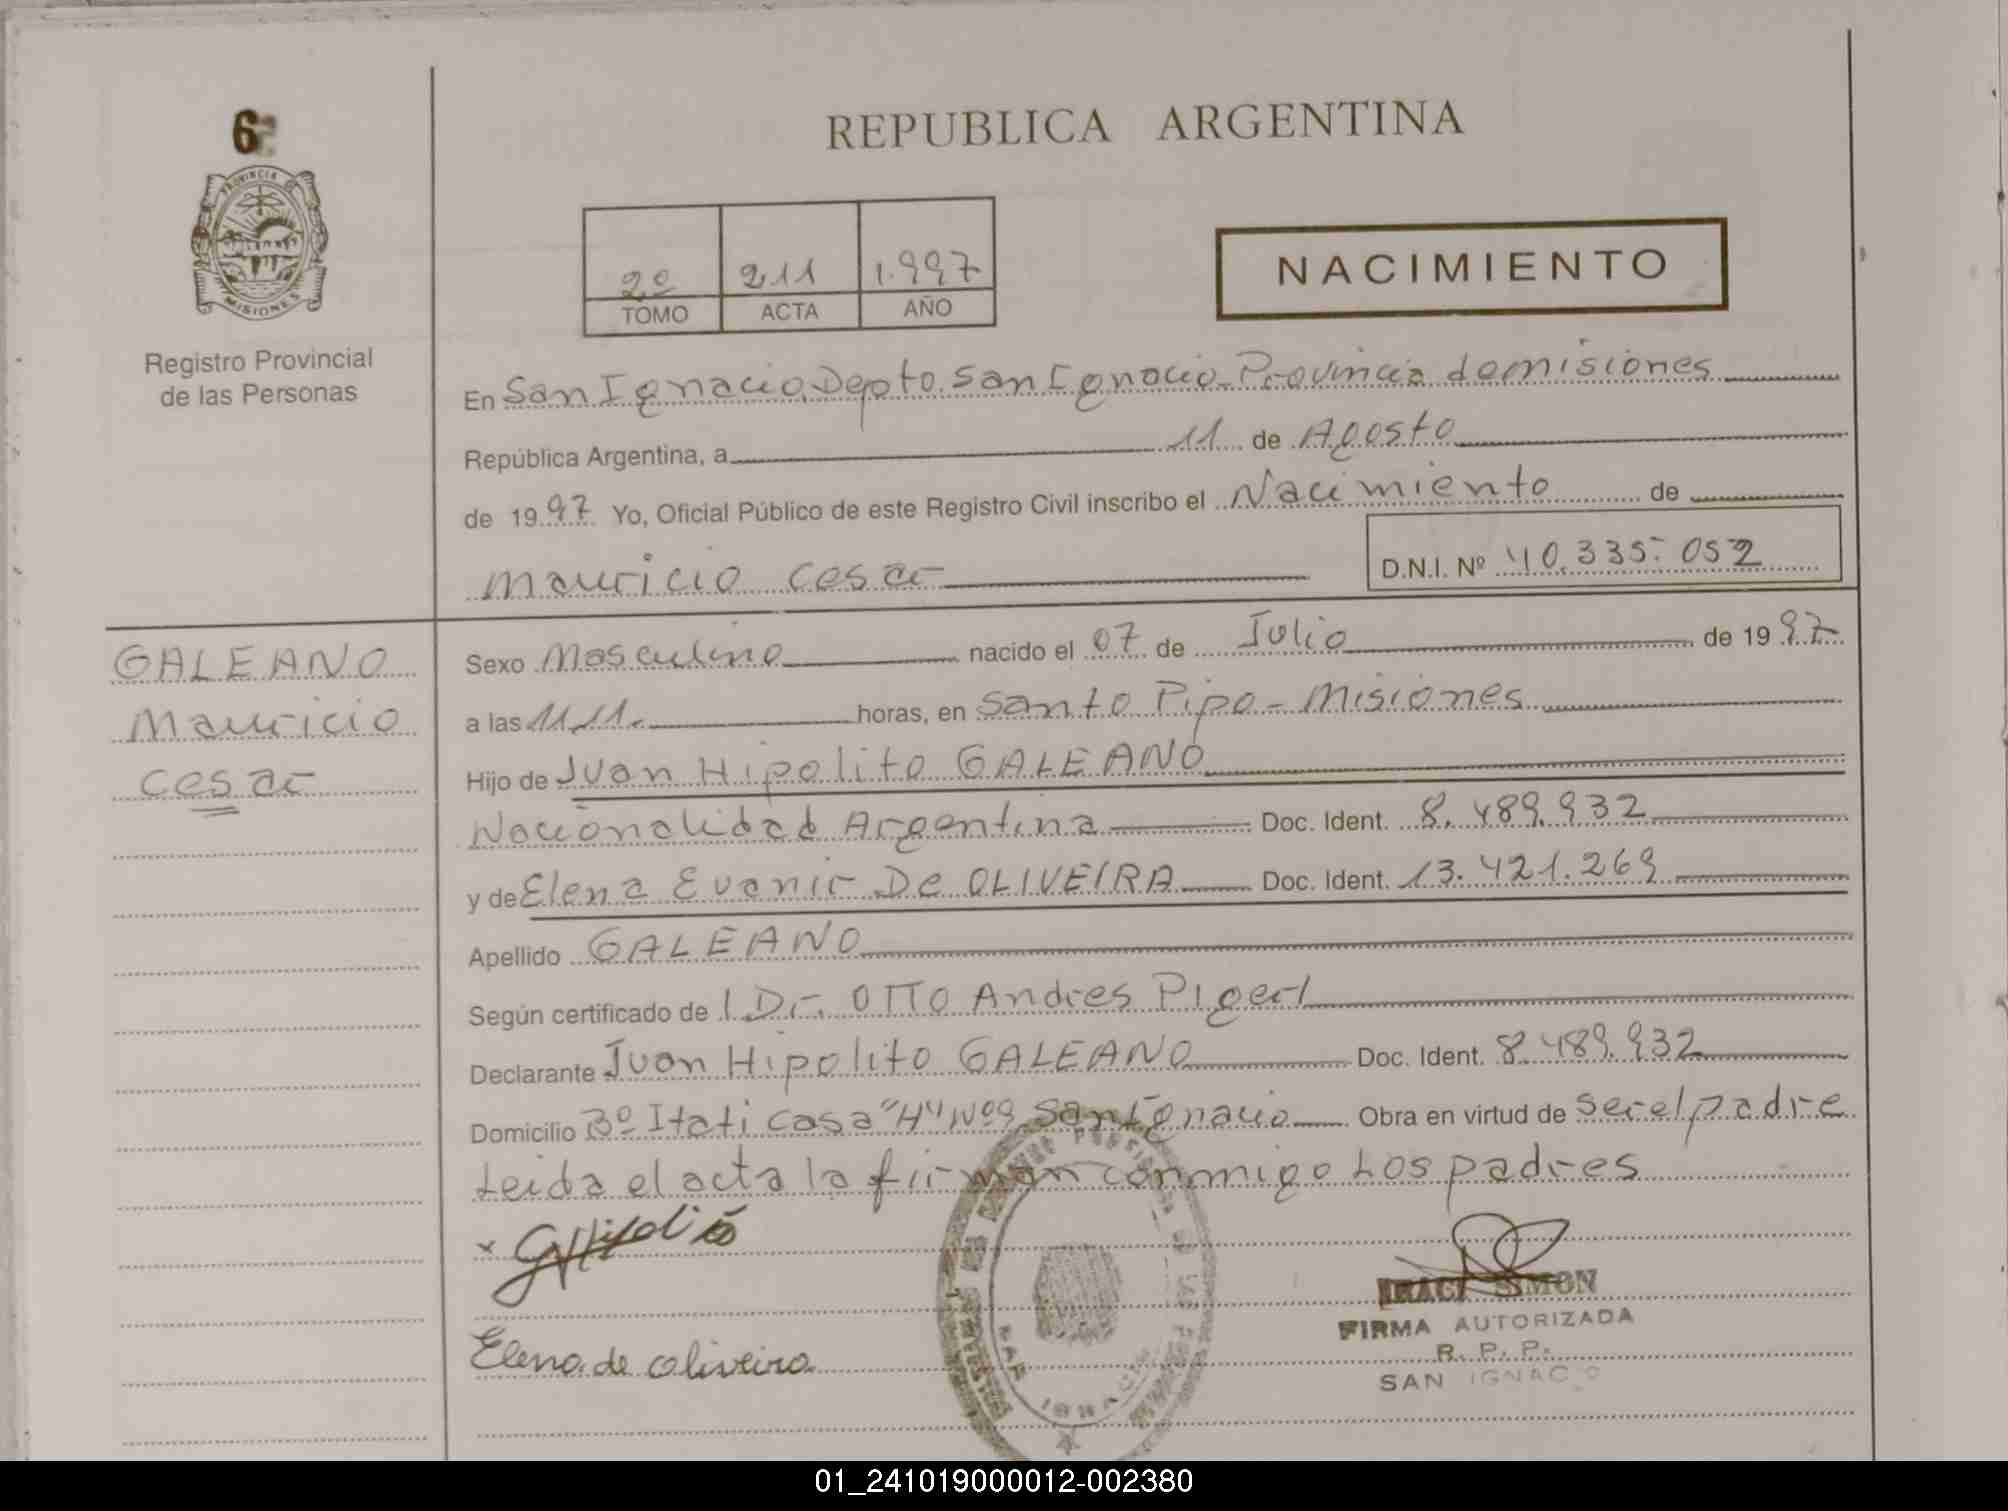 6
REPUBLICA ARGENTINA
PROVINCIA DE
MISIONES
Registro Provincial
de las Personas
2º 211 1.997
TOMO ACTA AÑO
NACIMIENTO
En San Ignacio, Depto. San Ignacio Provincia de misiones
República Argentina, a 11 de Agosto
de 1997 Yo, Oficial Público de este Registro Civil inscribo el Nacimiento de
Mauricio Cesar D.N.I. Nº 40.335.052
GALEANO
Mauricio
Cesar
Sexo Masculino nacido el 07 de Julio de 1997
a las 11,11. horas, en Santo Pipo - Misiones
Hijo de Juan Hipolito GALEANO
Nacionalidad Argentina Doc. Ident. 8.489.932
y de Elena Evanir De OLIVEIRA Doc. Ident. 13.421.269
Apellido GALEANO
Según certificado de l Dr. OTTO Andres Pigerl
Declarante Juan Hipolito GALEANO Doc. Ident. 8.489.932
Domicilio Bº Itati casa "H" Nº 9 San Ignacio Obra en virtud de ser el padre
Leida el acta la firman conmigo Los padres
Elena de oliveira
IRACI SIMON
FIRMA AUTORIZADA
R. P. P.
SAN IGNACIO
01_241019000012-002380